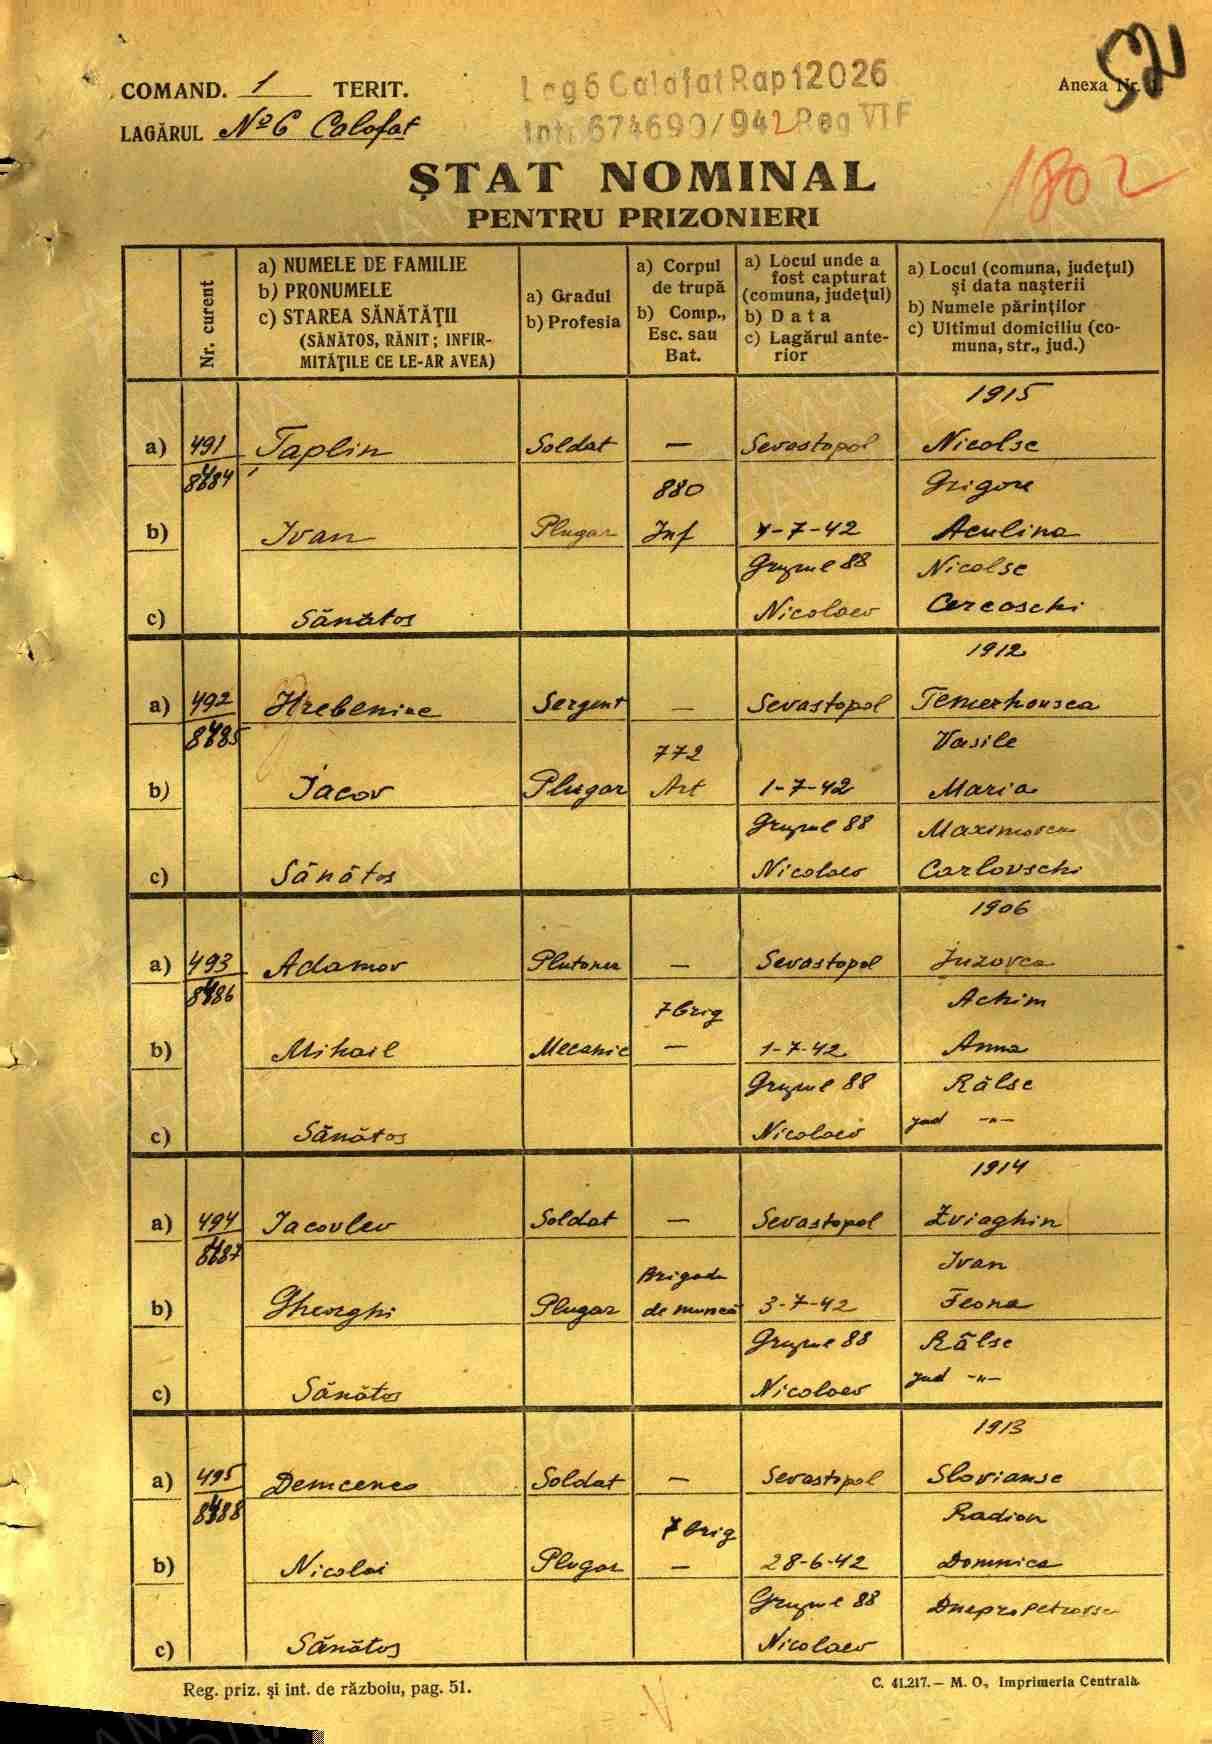 COMAND. 1 TERIT.
LAGĂRUL Nº6 Calafat
Lag6 Calafat Rap12026
Int. 674690/942 Reg VI F
Anexa Nr. 1.
52
1802
ȘTAT NOMINAL
PENTRU PRIZONIERI
Nr. curent
a) NUMELE DE FAMILIE
b) PRONUMELE
c) STAREA SĂNĂTĂȚII
(SĂNĂTOS, RĂNIT; INFIR-
MITĂȚILE CE LE-AR AVEA)
a) Gradul
b) Profesia
a) Corpul
de trupă
b) Comp.,
Esc. sau
Bat.
a) Locul unde a
fost capturat
(comuna, județul)
b) Data
c) Lagărul ante-
rior
a) Locul (comuna, județul)
și data nașterii
b) Numele părinților
c) Ultimul domiciliu (co-
muna, str., jud.)
1915
a) 491 Taplin Soldat — Sevastopol Nicolse
8484 880 Grigore
b) Ivan Plugar Inf 4-7-42 Aculina
Grupul 88 Nicolse
c) Sănătos Nicolaev Cercoschi
1912
a) 492 Hrebenine Sergent — Sevastopol Temerhousca
8485 772 Vasile
b) Iacov Plugar Art 1-7-42 Maria
Grupul 88 Maximovca
c) Sănătos Nicolaev Carlovschi
1906
a) 493 Adamov Plutoner — Sevastopol Iuzovca
8486 7 brig Achim
b) Mihail Mecanic — 1-7-42 Anna
Grupul 88 Râlse
c) Sănătos Nicolaev jud -"-
1914
a) 494 Iacovlev Soldat — Sevastopol Zviaghin
8487 Brigada Ivan
b) Gheorghi Plugar de muncă 3-7-42 Feona
Grupul 88 Râlse
c) Sănătos Nicolaev jud -"-
1913
a) 495 Demcenco Soldat — Sevastopol Slovianse
8488 7 brig Radion
b) Nicolai Plugar — 28-6-42 Domnica
Grupul 88 Dnepropetrovsc
c) Sănătos Nicolaev
Reg. priz. și int. de războiu, pag. 51.
C. 41.217. — M. O., Imprimeria Centrală.